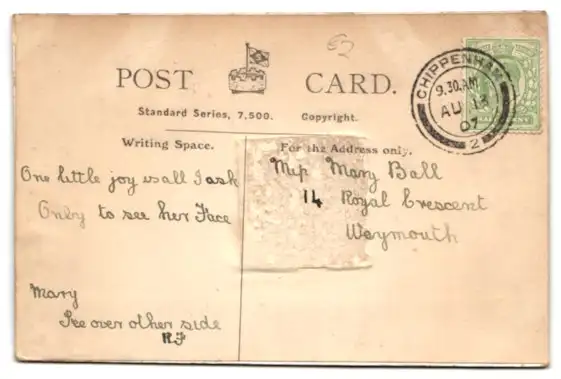 62
POST CARD.
Standard Series, 7,500. Copyright.
Writing Space.
For the Address only.
CHIPPENHAM
9.30.AM
AU 18
07
2
One little joy is all I ask
Only to see her Face
Mary
See over other side
R.F
Miss Mary Ball
14 Royal Crescent
Weymouth